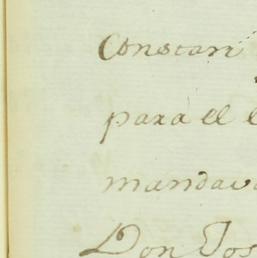 Constan
para el
mandav
Don Jos